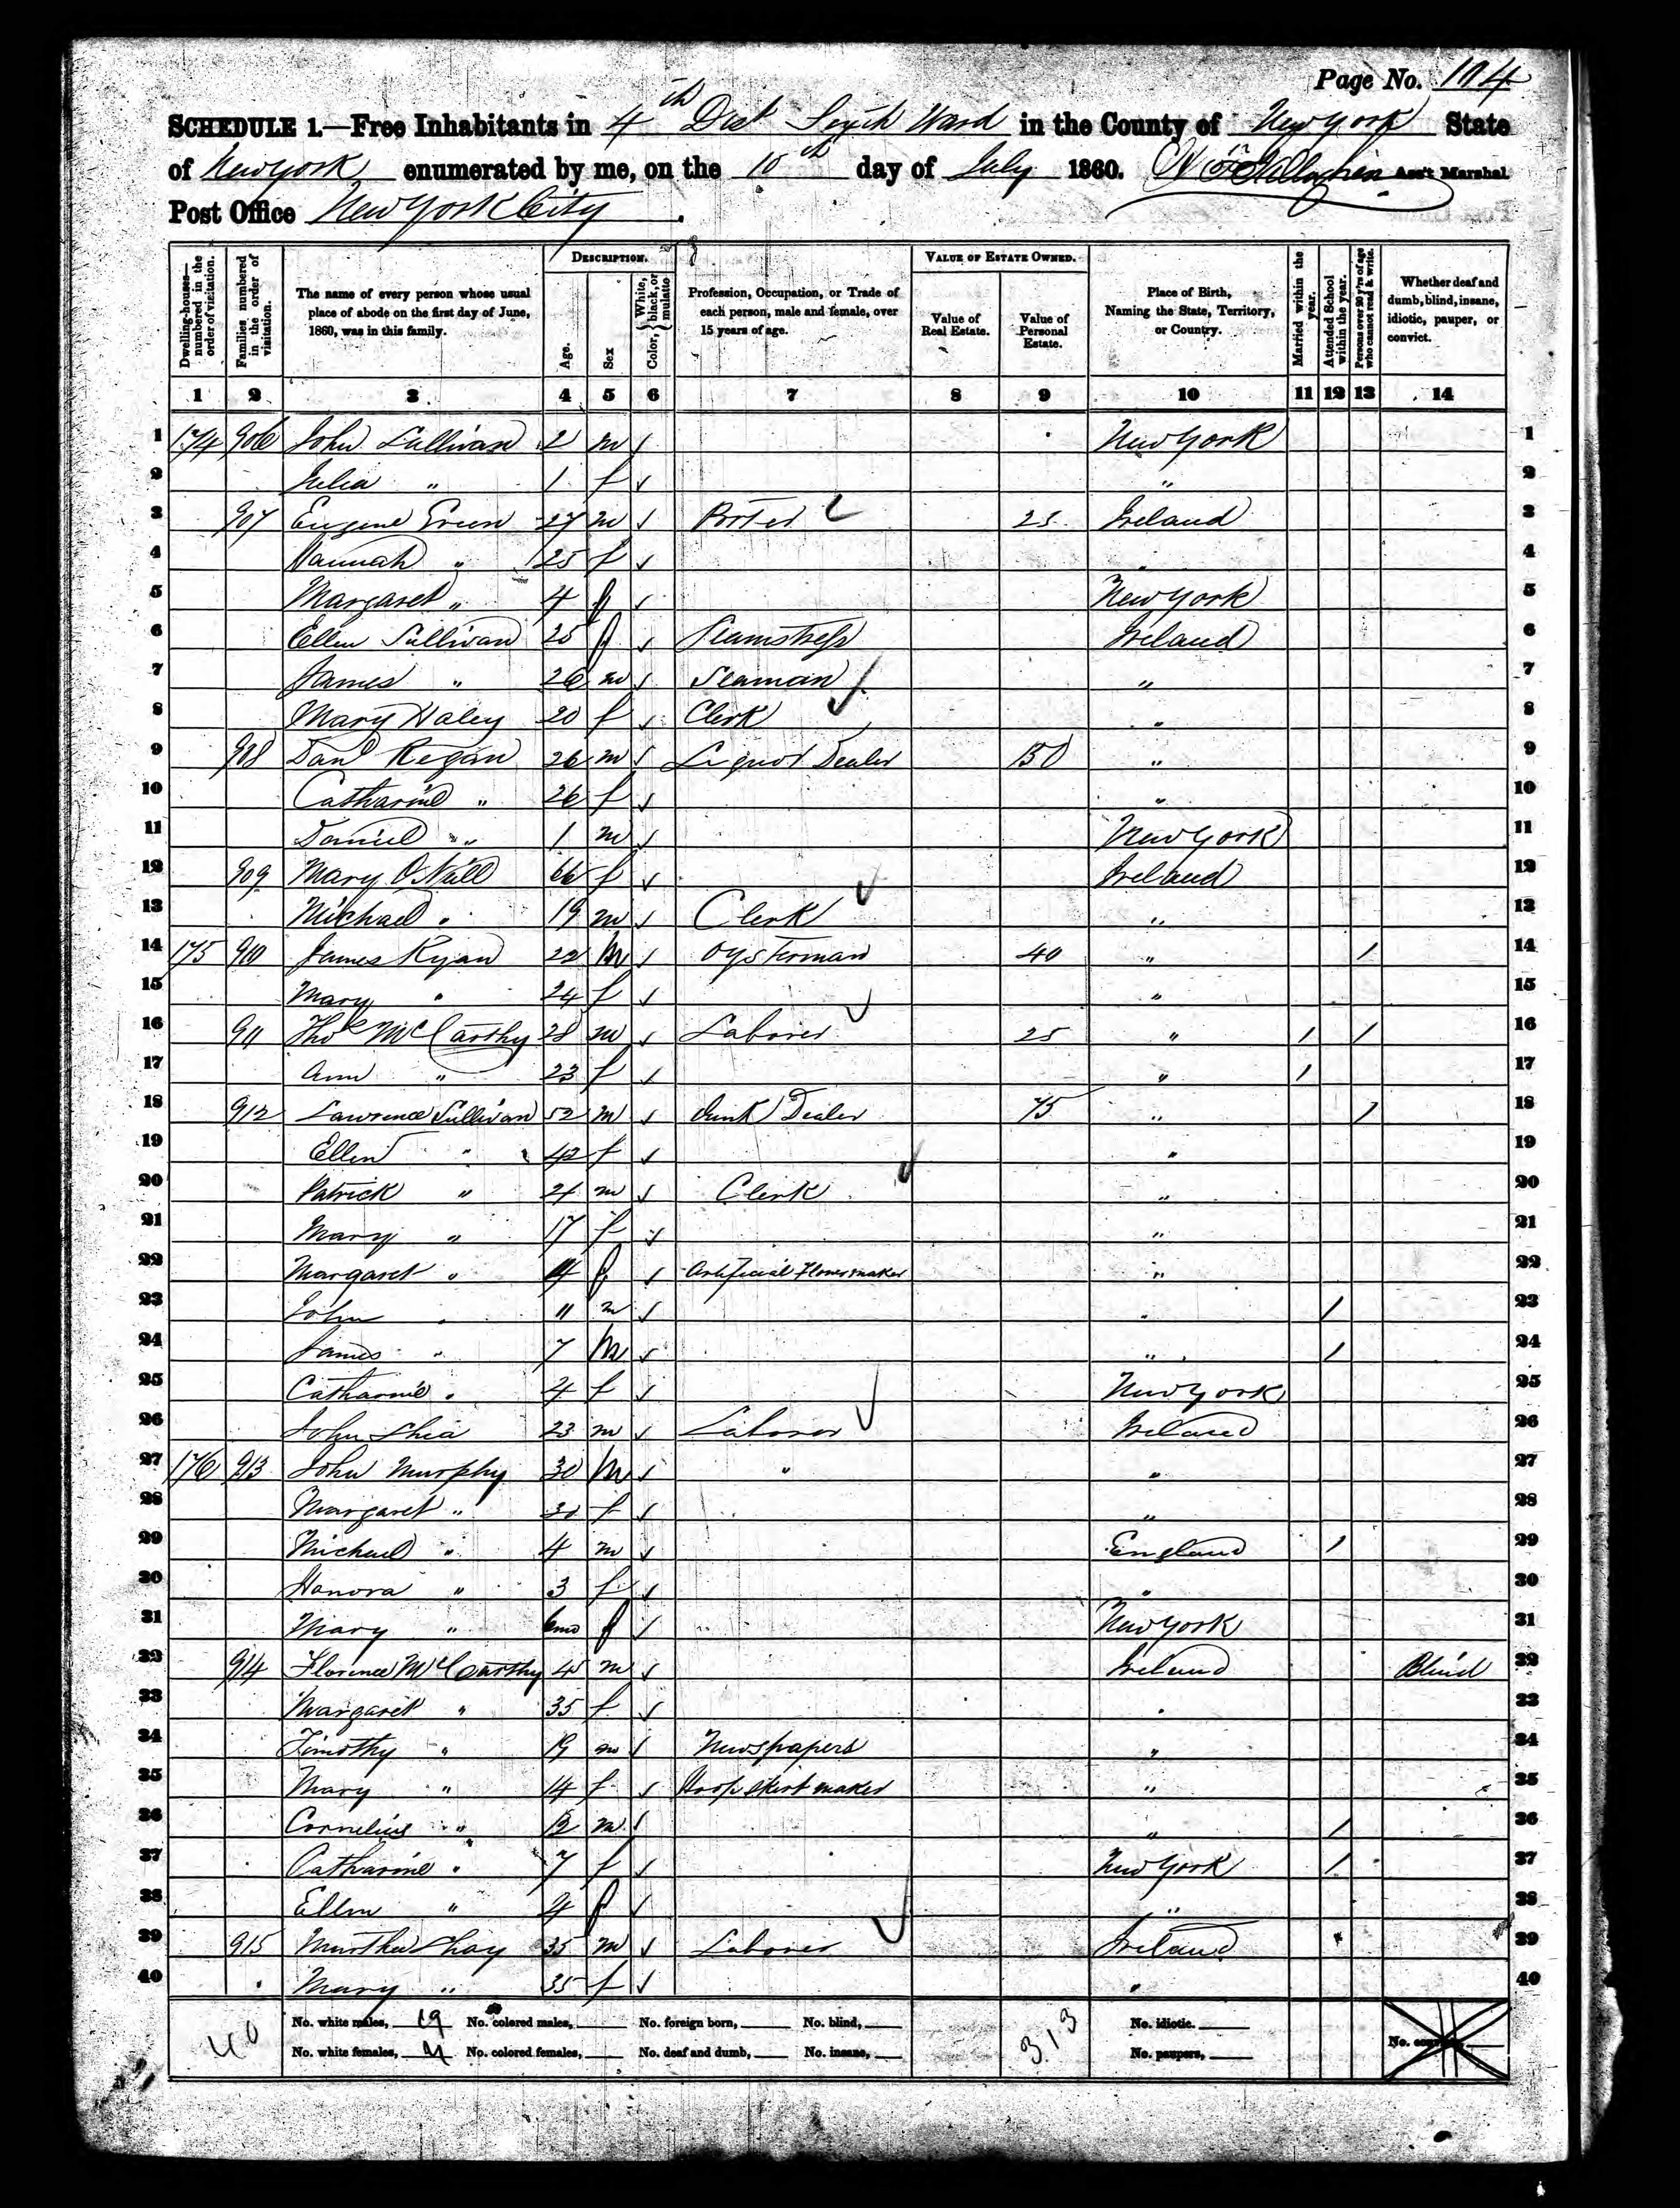 Page No. 104
SCHEDULE 1.—Free Inhabitants in 4th Dist Sixth Ward in the County of New York State
of New york enumerated by me, on the 10th day of July 1860. Ass't Marshal.
Post Office New York City
Dwelling-houses—numbered in the order of visitation. Families numbered in the order of visitation. The name of every person whose usual place of abode on the first day of June, 1860, was in this family. DESCRIPTION. Age. Sex Color, White, black, or mulatto Profession, Occupation, or Trade of each person, male and female, over 15 years of age. VALUE OF ESTATE OWNED. Value of Real Estate. Value of Personal Estate. Place of Birth, Naming the State, Territory, or Country. Married within the year. Attended School within the year. Persons over 20 y'rs of age who cannot read & write. Whether deaf and dumb, blind, insane, idiotic, pauper, or convict.
1 2 3 4 5 6 7 8 9 10 11 12 13 14
1 174 906 John Sullivan 2 m New York 1
2 Julia " 1 f " 2
3 907 Eugene Green 27 m Porter 25 Ireland 3
4 Hannah " 25 f " 4
5 Margaret " 4 f New York 5
6 Ellen Sullivan 25 f Seamstress Ireland 6
7 James " 26 m Seaman " 7
8 Mary Haley 20 f Clerk " 8
9 908 Danl Regan 26 m Liquor Dealer 150 " 9
10 Catharine " 26 f " 10
11 Daniel " 1 m New York 11
12 909 Mary O'Neill 66 f Ireland 12
13 Michael " 19 m Clerk " 13
14 175 910 James Ryan 22 m Oysterman 40 " / 14
15 Mary " 24 f " 15
16 911 Thos McCarthy 28 m Laborer 25 " / / 16
17 Ann " 23 f " / 17
18 912 Lawrence Sullivan 52 m Junk Dealer 75 " / 18
19 Ellen " 42 f " 19
20 Patrick " 21 m Clerk " 20
21 Mary " 17 f " 21
22 Margaret " 14 f Artificial Flower maker " 22
23 John " 11 m " / 23
24 James " 7 m " / 24
25 Catharine " 4 f New York 25
26 John Shea 23 m Laborer Ireland 26
27 176 913 John Murphy 30 m " " 27
28 Margaret " 30 f " 28
29 Michael " 4 m England / 29
30 Hanora " 3 f " 30
31 Mary " 6mo f New York 31
32 914 Florence McCarthy 45 m Ireland Blind 32
33 Margaret " 35 f " 33
34 Timothy " 19 m Newspapers " 34
35 Mary " 14 f Hoop skirt maker " 35
36 Cornelius " 12 m " / 36
37 Catharine " 7 f New York / 37
38 Ellen " 4 f " 38
39 915 Murtha Shay 35 m Laborer Ireland 39
40 Mary " 35 f " 40
40 No. white males, 19 No. colored males, No. foreign born, No. blind, 313 No. idiotic.
No. white females, 21 No. colored females, No. deaf and dumb, No. insane, No. paupers,